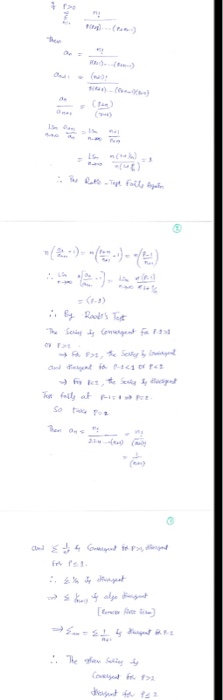 If P>0
Σ n! / P(P+1)...(P+n-1)
Then
an = n! / P(P+1)...(P+n-1)
an+1 = (n+1)! / P(P+1)...(P+n-1)(P+n)
an / an+1 = (P+n) / (n+1)
Lim n→∞ an+1 / an = Lim n→∞ n+1 / P+n
∴ The Ratio-Test Fails again
②
n(an/an+1 - 1) = n(P+n/n+1 - 1) = n(P-1/n+1)
∴ By Raabe's Test
The Series is Convergent for P-1>1
or P>2
⇒ for P>2, the Series is Convergent
and divergent for P-1<1 or P<2
⇒ for P<2, the Series is divergent
Test fails at P-1=1 or P=2.
So take P=2.
Then an = n! / 2.3...(n+1) = n! / (n+1)!
= 1 / (n+1)
③
and Σ is Convergent for P>1, divergent
for P≤1.
∴ Σ 1/n is divergent
is also divergent
[Remove first term]
is divergent for P=2
∴ The given Series is
Convergent for P>2
divergent for P≤2